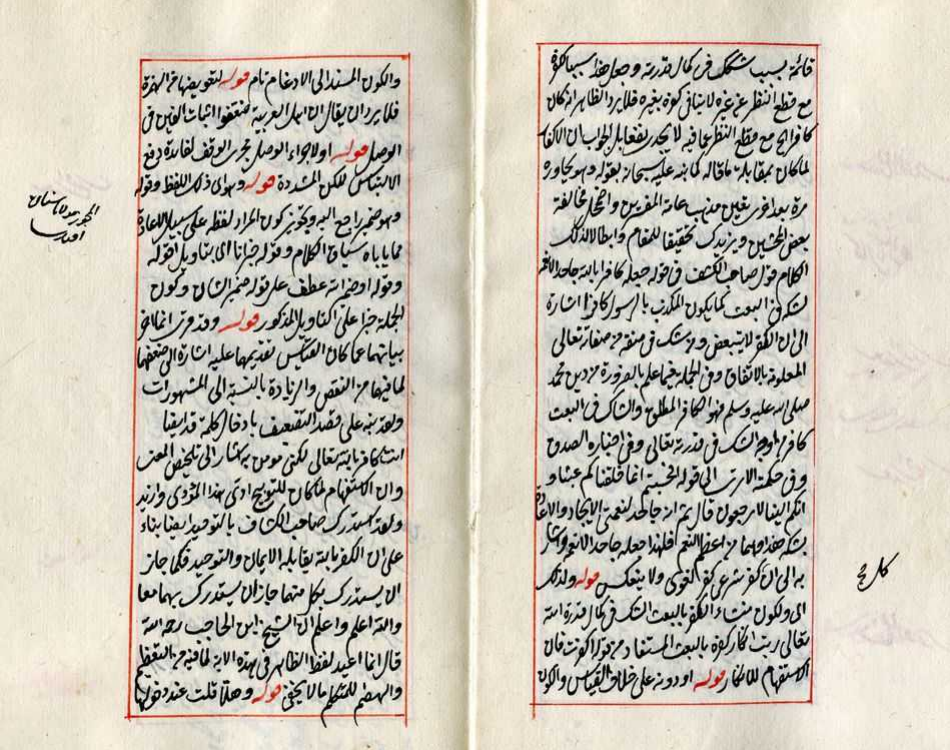 قائمة بسبب شكك في كمال قدرته وجعل هذا سببا لكفره
مع قطع النظر عن غيره لا ينافي كفره بغيره فلا يرد الظاهر انه كان
كافرا مع قطع النظر عما فيه لا يجدي نفعا بل الجواب ان
لما كان بمقابلة ما قاله كما نبه عليه سبحانه بقوله وهو يحاوره
مرة بعد اخرى تعين مذهب عامة المفسرين واضمحل مخالفة
بعض المحشين ويزيدك تحقيقا للمقام وابطالا لذلك
الكلام قول صاحب الكشف في قوله جعله كافرا بالله جاحدا لانعمه
لشكه في البعث كما يكون المكذب بالرسول كافرا اشارة
الى ان الكفر لا يتبعض ومن شك في صفة من صفاته تعالى
المعلومة بالاتفاق وفي الجملة فيما علم بالضرورة من دين محمد
صلى الله عليه وسلم فهو الكافر المطلق والشاك في البعث
كافر من اوجه الشك في قدرته تعالى وفي اخباره الصدق
وفي حكمته الا ترى الى قوله افحسبتم انما خلقناكم عبثا و
انكم الينا لا ترجعون قال ثم انه جاحد لنعمتي الايجاد والاعادة
بشكه هذا وهما من اعظم النعم فلهذا جعله جاحدا لانعمه واشار
به الى ان كفر شرعي كفر لغوي ولا ينعكس قوله ولذلك
اي ولكون منشاء الكفر بالبعث الشك في كمال قدرة الله
تعالى رتب انكار كفره بالبعث المستفاد من قوله اكفرت فان
الاستفهام للانكار قوله او دونه على خلاف القياس والكون
كل صح
والكون المستند الى الادغام تام قوله لتعويضها من الهمزة
فلا يرد ان يقال ان اهل العربية ضعفوا اثبات الفين في
الوصل قوله او لاجراء الوصل مجرى الوقف لفائدة دفع
الالتباس للكن المشددة قوله وهو اي ذلك اللفظ وقوله
وهو ضمير راجع اليه وتجويز كون المراد لفظ على سبيل الاعادة
مما ياباه سياق الكلام وقوله خبر انا اي بتاويل اقوله
وقوله او ضم الله عطف على قوله ضمير الشان وكون
الجملة خبرا على التاويل المذكور قوله وقد قرئ انما اخر
بيانهما عما كان القياس تقديمهما عليه اشارة الى ضعفهما
لما فيهما من النقص والزيادة بالنسبة الى المشهورات
ولعله نبه على قصد التضعيف بادخال كلمة قد ايضا
انت كافر بالله تعالى لكني مومن به اشار الى تلخص المعنى
وان الاستفهام لما كان للتوبيخ ادى هذا المؤدى وازيد
ولعله استدرك صاحب الكشاف بالتوحيد ايضا بناء
على ان الكفر بالله يقابله الايمان والتوحيد فكما جاز
ان يستدرك بكل منهما جاز ان يستدرك بهما معا
والله اعلم واعلم ان الشيخ ابن الحاجب رحمه الله
قال انما اعيد لفظ الظاهر في هذه الاية لما فيه من التعظيم
والهضم للمتكلم ما لا يخفى قوله وهلا قلت عند دخولها